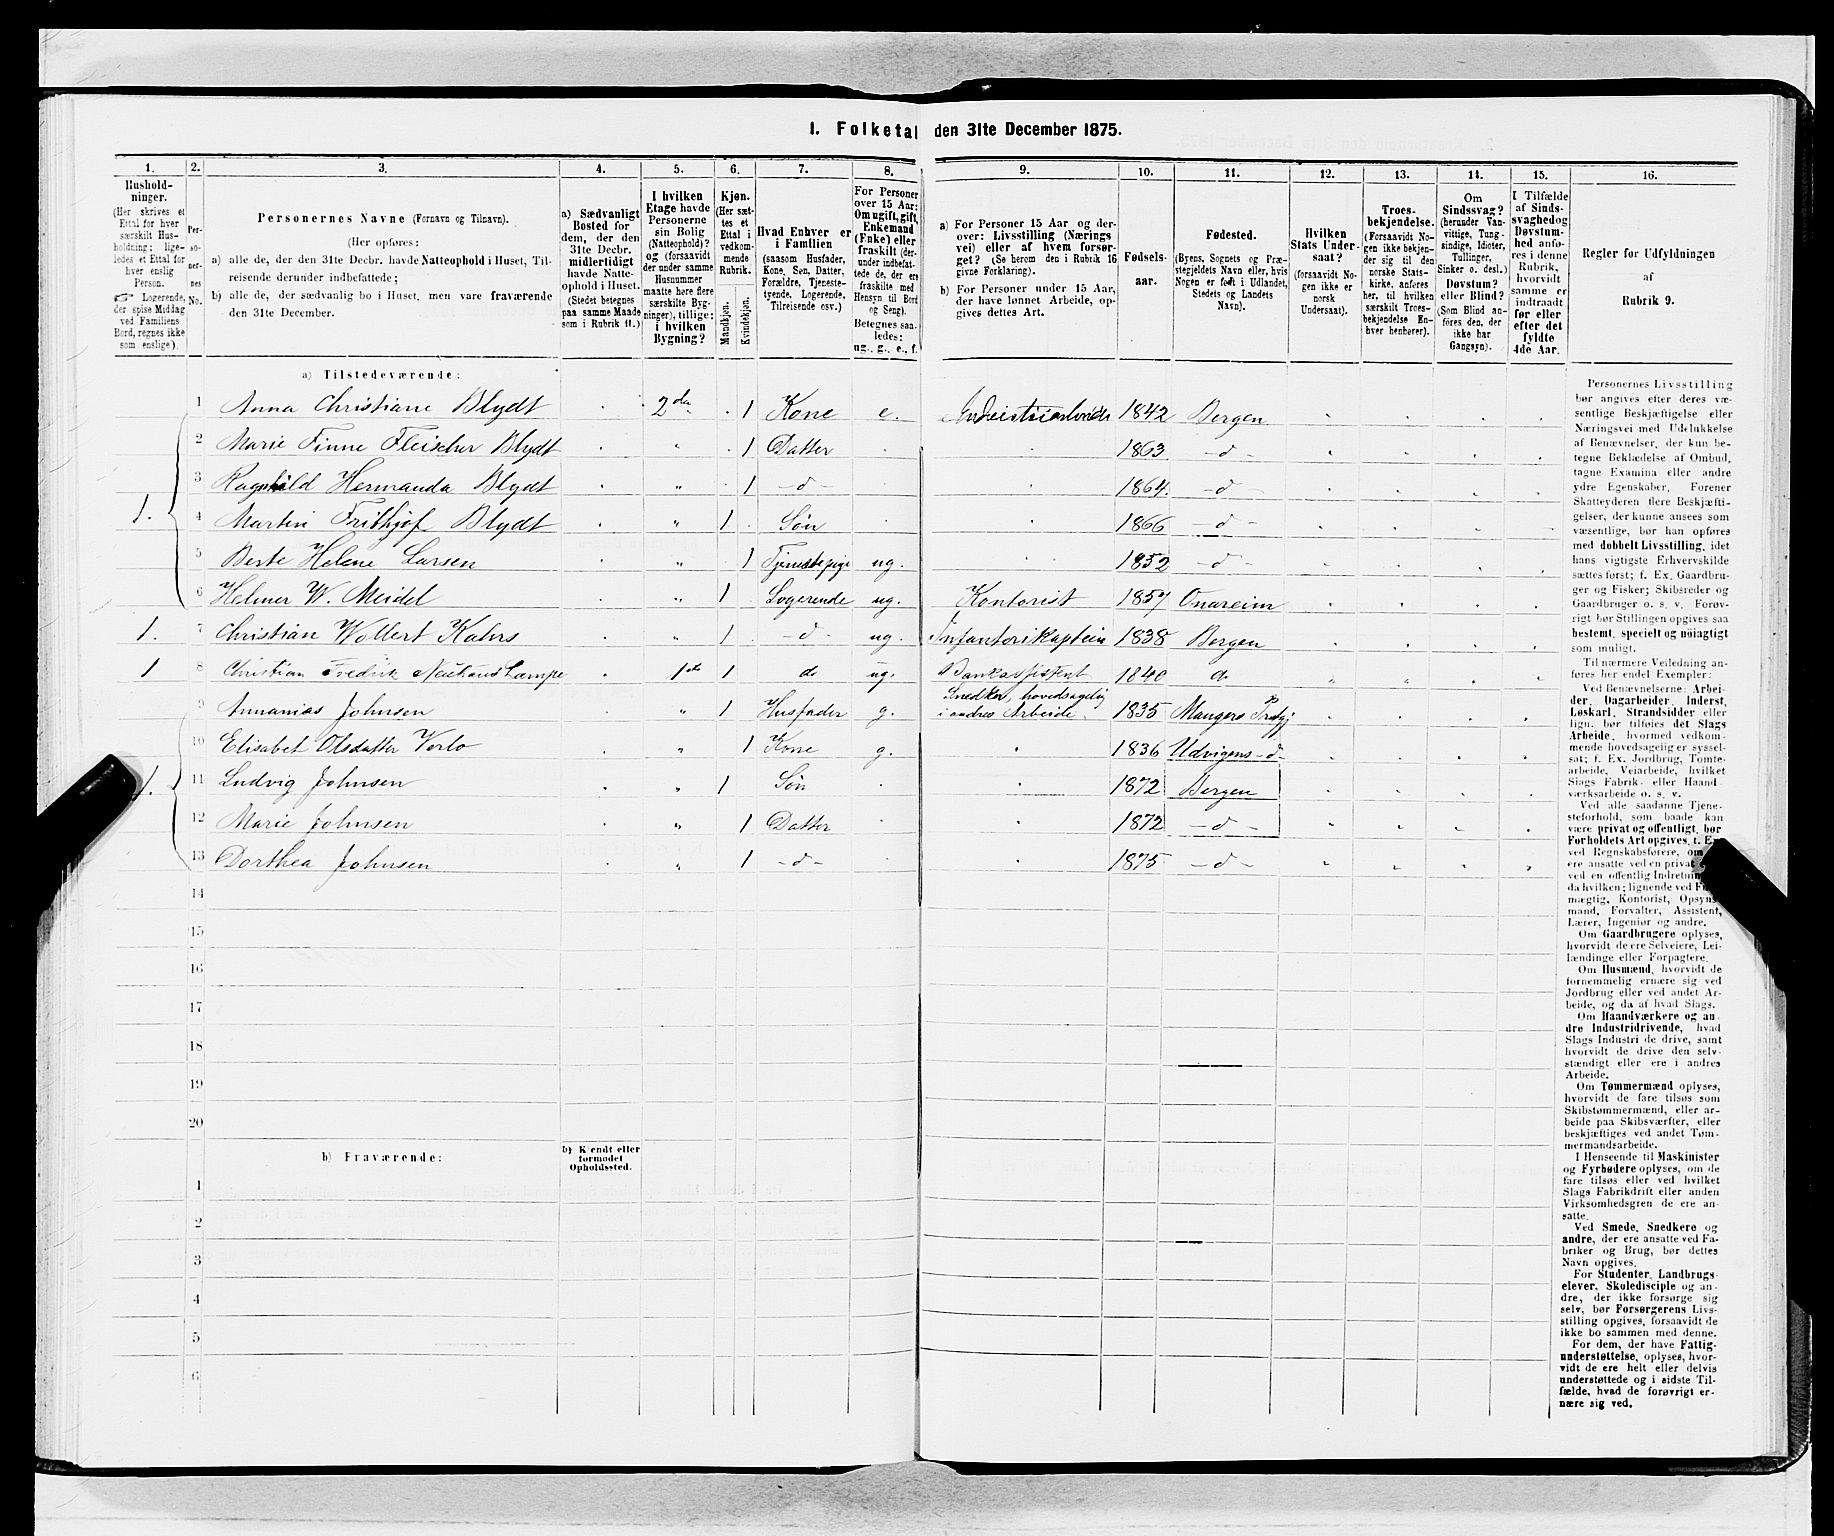 1. Folketal den 31te December 1875.
1. 2. 3. 4. 5. 6. 7. 8. 9. 10. 11. 12. 13. 14. 15. 16.
Hushold-
ninger.
(Her skrives et
Ettal for hver
særskilt Hus-
holdning; lige-
ledes et Ettal for
hver enslig
Person.
☞ Logerende,
der spise Middag
ved Familiens
Bord, regnes ikke
som enslige).
Per-
so-
ner-
nes
No.
Personernes Navne (Fornavn og Tilnavn).
(Her opføres:
a) alle de, der den 31te Decbr. havde Natteophold i Huset, Til-
reisende derunder indbefattede;
b) alle de, der sædvanlig bo i Huset, men vare fraværende
den 31te December.
a) Sædvanligt
Bosted for
dem, der den
31te Decbr.
midlertidigt
havde Natte-
ophold i Huset.
(Stedet betegnes
paa samme Maade
som i Rubrik 11.)
I hvilken
Etage havde
Personerne
sin Bolig
(Natteophold)?
og (forsaavidt
der under samme
Husnummer
maatte høre flere
særskilte Byg-
ninger), tillige:
i hvilken
Bygning?
Kjøn.
(Her sæt-
tes et
Ettal i
vedkom-
mende
Rubrik.
Mandkjøn.
Kvindekjøn.
Hvad Enhver er
i Familien
(saasom Husfader,
Kone, Søn, Datter,
Forældre, Tjeneste-
tyende, Logerende,
Tilreisende osv.)
For Personer
over 15 Aar:
Om ugift, gift,
Enkemand
(Enke) eller
fraskilt (der-
under indbefat-
tede de, der ere
fraskilte med
Hensyn til Bord
og Seng).
Betegnes saa-
ledes:
ug., g., e., f.
a) For Personer 15 Aar og der-
over: Livsstilling (Nærings
vei) eller af hvem forsør-
get? (Se herom den i Rubrik 16
givne Forklaring).
b) For Personer under 15 Aar,
der have lønnet Arbeide, op-
gives dettes Art.
Fødsels-
aar.
Fødested.
(Byens, Sognets og Præ-
stegjeldets Navn eller, hvis
Nogen er født i Udlandet,
Stedets og Landets
Navn).
Hvilken
Stats Under-
saat?
(forsaavidt No-
gen ikke er
norsk
Undersaat).
Troes-
bekjendelse.
(Forsaavidt No-
gen ikke bekjen-
der sig til den
norske Stats-
kirke, anføres
her, til hvilken
særskilt Troes-
bekjendelse En-
hver henhører).
Om
Sindssvag?
(herunder Van-
vittige, Tung-
sindige, Idioter,
Tullinger,
Sinker o. desl.)
Døvstum?
eller Blind?
(Som Blind an-
føres den, der
ikke har
Gangsyn).
I Tilfælde
af Sinds-
svaghed og
Døvstum-
hed anfø-
res i denne
Rubrik,
hvorvidt
samme er
indtraadt
før eller
efter det
fyldte
4de Aar.
Regler før Udfyldningen
af
Rubrik 9.
a) Tilstedeværende:
1 Anna Christiane Blydt 2den 1 Kone e. 1842 Bergen
2 Marie Finne Fleischer Blydt " 1 Datter 1863 -d-
3 Ragnhild Hermanda Blydt " 1 -d- 1864. -d-
1. 4 Martin Frithjof Blydt " 1 Søn 1866 -d-
5 Berte Helene Larsen " 1 Tjenestepige ug. 1852 -d-
6 Helmer W. Meidel " 1 Logerende ug. Kontorist 1857 Onareim
1. 7 Christian Wollert Kahrs " 1 -d- ug. Infanterikaptein 1838 Bergen
1 8 Christian Fredrik Neuhaus Lampe 1ste 1 do ug. Bankassistent 1840 do
9 Annanias Johnsen " 1 Husfader g. Snedker, hovedsagelig
i andres Arbeide. 1835 Mangers Prstgj
10 Elisabet Olsdatter Verlo 1 Kone g. 1836 Udvigens -d-
1. 11 Ludvig Johnsen " 1 Søn 1872 Bergen
12 Marie Johnsen " 1 Datter 1872 -d-
13 Dorthea Johnsen " 1 -d- 1875 -d-
14
15
16
17
18
19
20
b) Fraværende:
b) Kjendt eller
formodet
Opholdssted.
1
2
3
4
5
6
Personernes Livsstilling
bør angives efter deres væ-
sentlige Beskjæftigelse eller
Næringsvei med Udelukkelse
af Benævnelser, der kun be-
tegne Beklædelse af Ombud,
tagne Examina eller andre
ydre Egenskaber. Forener
Skatteyderen flere Beskjæfti-
gelser, der kunne ansees som
væsentlige, bør han opføres
med dobbelt Livsstilling, idet
hans vigtigste Erhvervskilde
sættes først; f. Ex. Gaardbru-
ger og Fisker; Skibsreder og
Gaardbruger o. s. v. Forøv-
rigt bør Stillingen opgives saa
bestemt, specielt og nöiagtigt
som muligt.
Til nærmere Veiledning an-
føres her endel Exempler:
Ved Benævnelserne: Arbei-
der, Dagarbeider, Inderst,
Løskarl, Strandsidder eller
lign. bør tilføies det Slags
Arbeide, hvormed vedkom-
mende hovedsagelig er syssel-
sat; f. Ex. Jordbrug, Tomte-
arbeide, Veiarbeide, hvilket
Slags Fabrik- eller Haand
værksarbeide o. s. v.
Ved alle saadanne Tjene-
steforhold, som baade kan
være privat og offentligt, bør
Forholdets Art opgives, t. Ex.
ved Regnskabsførere, om
ere ansatte ved en privat
ved en offentlig Indretning
da hvilken; lignende ved Fuld-
mægtig, Kontorist, Opsyns-
mand, Forvalter, Assistent,
Lærer, Ingeniør og andre.
Om Gaardbrugere oplyses,
hvorvidt de ere Selveiere, Lei-
lændinge eller Forpagtere.
Om Husmænd, hvorvidt de
fornemmelig ernære sig ved
Jordbrug eller ved andet Ar-
beide, og da af hvad Slags.
Om Haandværkere og an-
dre Industridrivende, hvad
Slags Industri de drive, samt
hvorvidt de drive den selv-
stændigt eller ere i andres
Arbeide.
Om Tømmermænd oplyses,
hvorvidt de fare tilsøs som
Skibstømmermænd, eller ar-
beide paa Skibsværfter, eller
beskjæftiges ved andet Tøm-
mermandsarbeide.
I Henseende til Maskinister
og Fyrbødere oplyses, om de
fare tilsøs eller ved hvilket
Slags Fabrikdrift eller anden
Virksomhedsgren de ere an-
satte.
Ved Smede, Snedkere og
andre, der ere ansatte ved Fa-
briker og Brug, bør dettes
Navn opgives.
For Studenter, Landbrugs-
elever, Skoledisciple og an-
dre, der ikke forsørge sig
selv, bør Forsørgerens Livs-
stilling opgives, forsaavidt de
ikke bo sammen med denne.
For dem, der have Fattig-
understøttelse, oplyses, hvor-
vidt de ere helt eller delvis
understøttede og i sidste Til-
fælde, hvad de forøvrigt er-
nære sig ved.